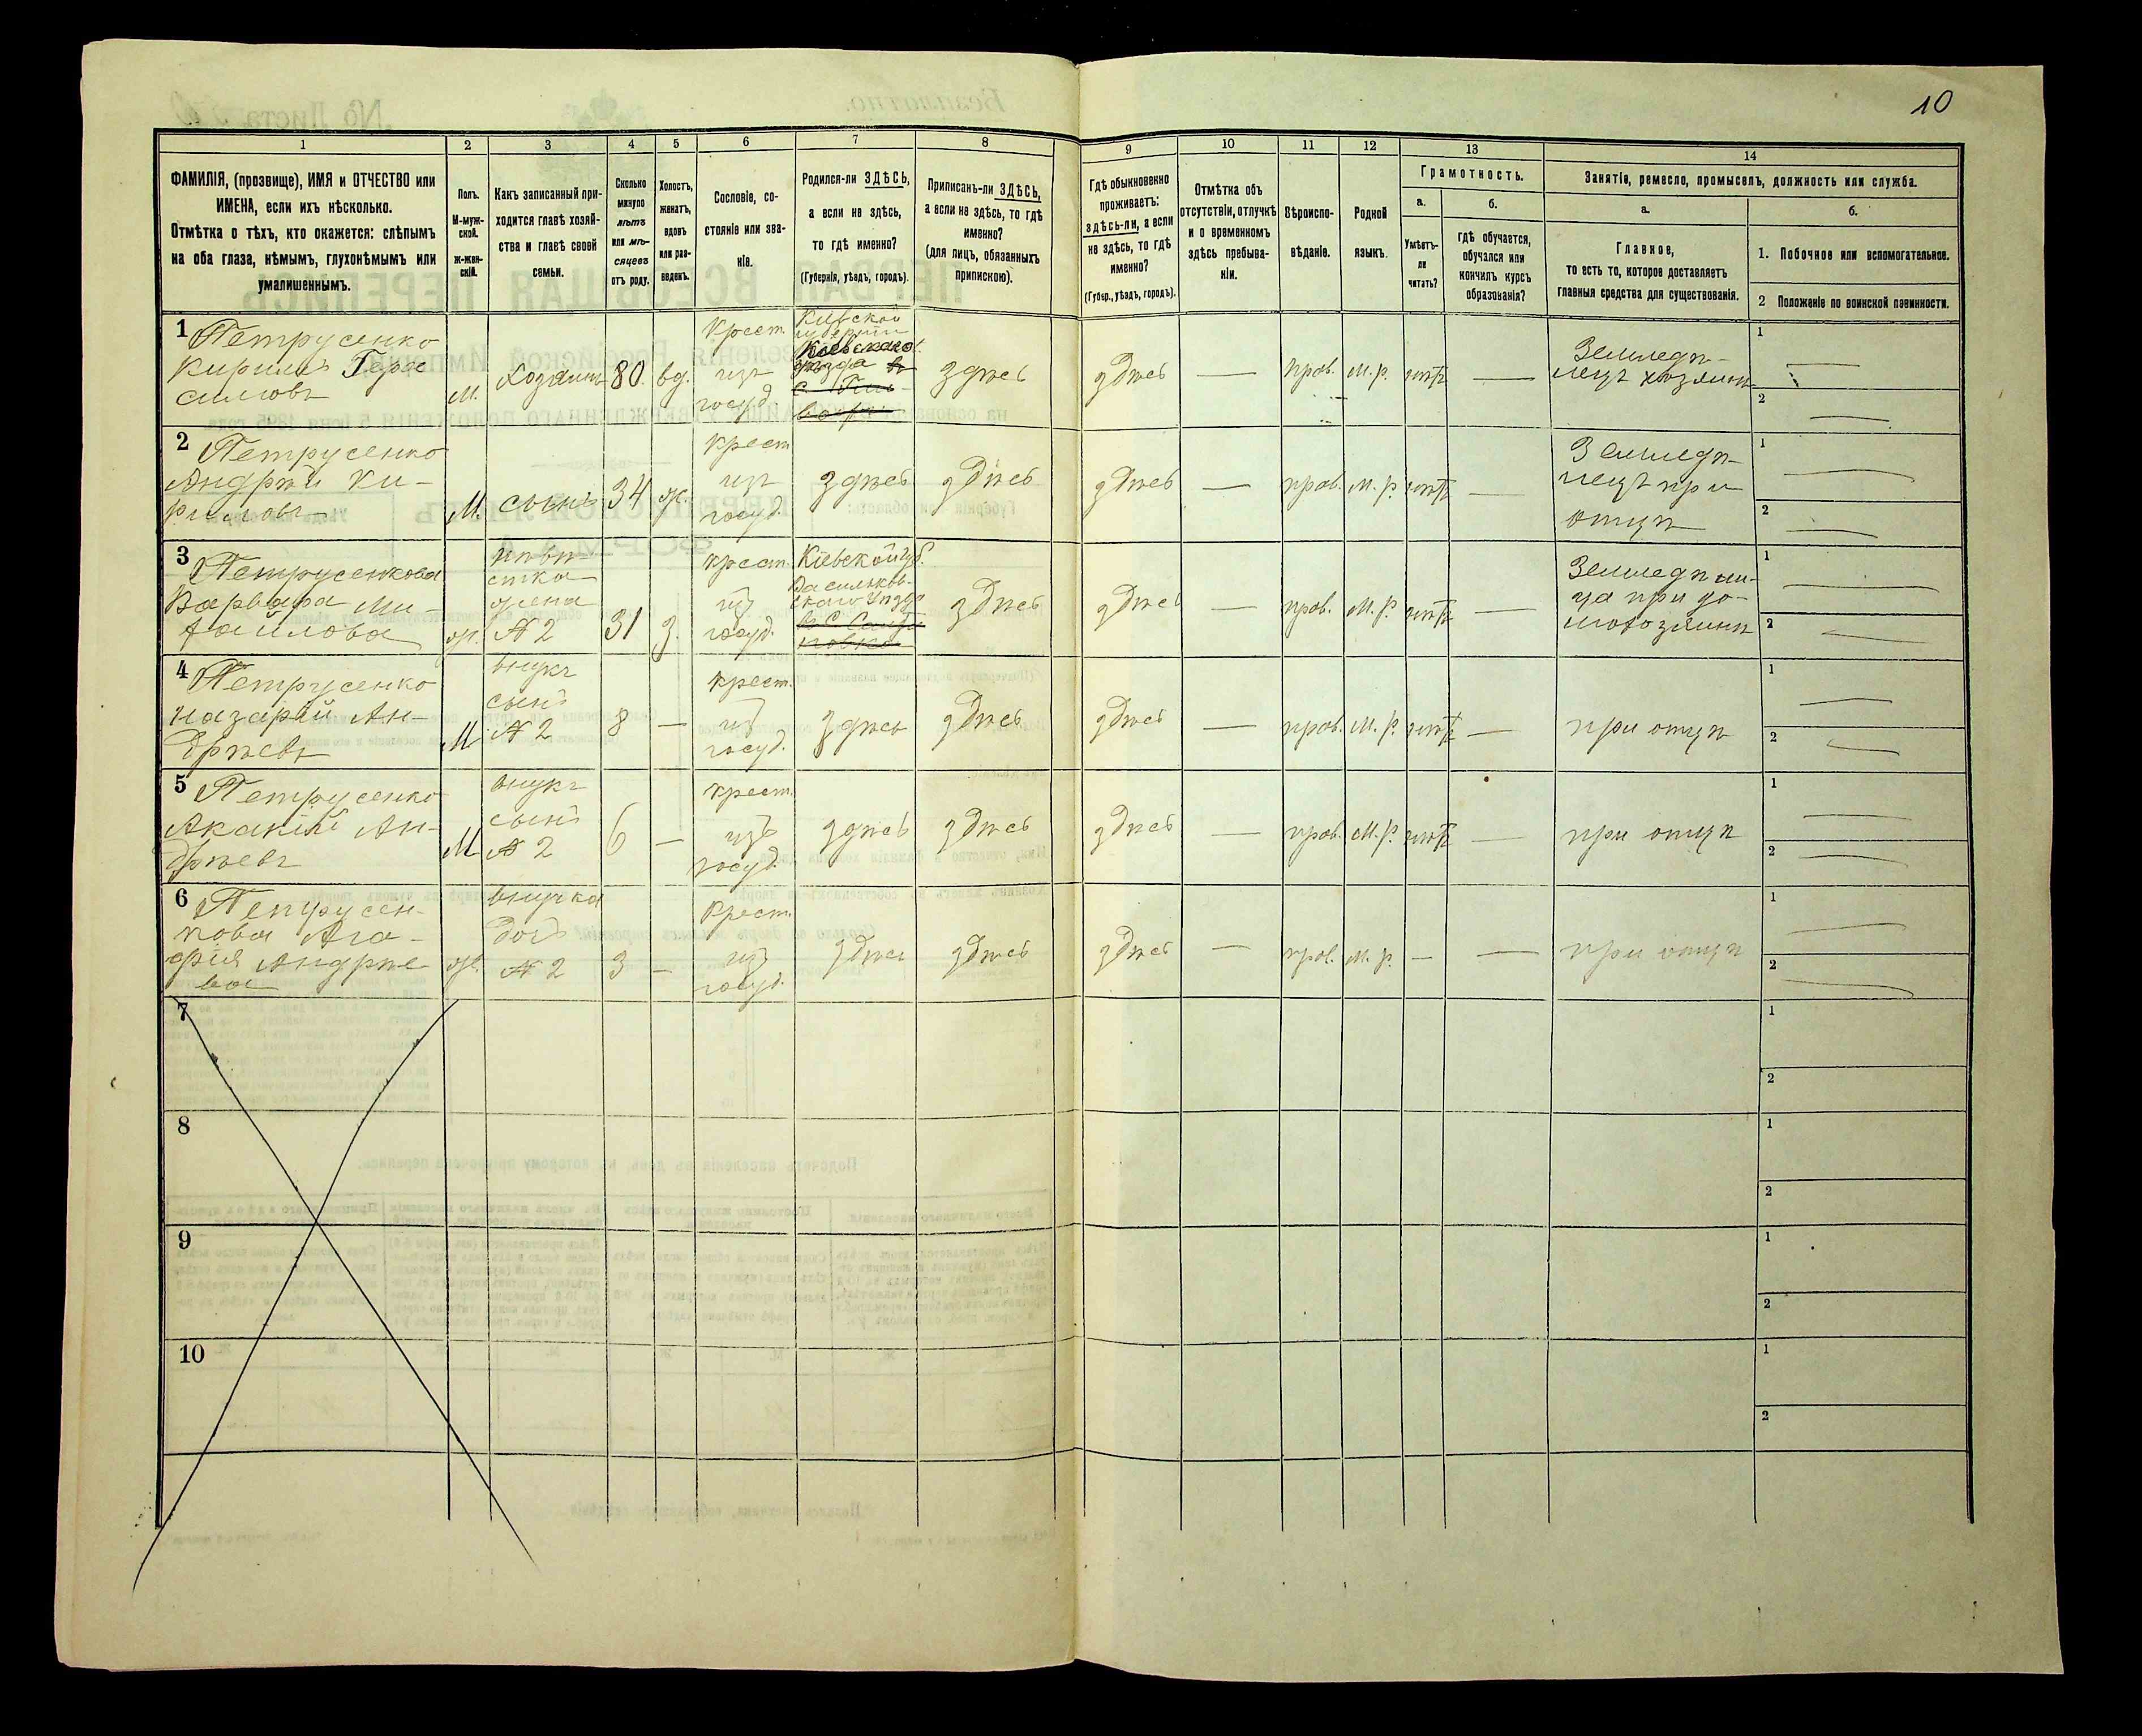 10
1 2 3 4 5 6 7 8 9 10 11 12 13 14
ФАМИЛІЯ, (прозвище), ИМЯ и ОТЧЕСТВО или
ИМЕНА, если ихъ нѣсколько.
Отмѣтка о тѣхъ, кто окажется: слѣпымъ
на оба глаза, нѣмымъ, глухонѣмымъ или
умалишеннымъ.
Полъ.
М-муж-
ской.
ж-жен-
скій.
Какъ записанный при-
ходится главѣ хозяй-
ства и главѣ своей
семьи.
Сколько
минуло
лѣтъ
или мѣ-
сяцевъ
отъ роду.
Холостъ,
женатъ,
вдовъ
или раз-
веденъ.
Сословіе, со-
стояніе или зва-
ніе.
Родился-ли ЗДѢСЬ,
а если не здѣсь,
то гдѣ именно?
(Губернія, уѣздъ, городъ).
Приписанъ-ли ЗДѢСЬ,
а если не здѣсь, то гдѣ
именно?
(для лицъ, обязанныхъ
припискою).
Гдѣ обыкновенно
проживаетъ:
здѣсь-ли, а если
не здѣсь, то гдѣ
именно?
(Губер., уѣздъ, городъ).
Отмѣтка объ
отсутствіи, отлучкѣ
и о временномъ
здѣсь пребыва-
ніи.
Вѣроиспо-
вѣданіе.
Родной
языкъ.
Грамотность.
а.
Умѣетъ-
ли
читать?
б.
гдѣ обучается,
обучался или
кончилъ курсъ
образованія?
Занятіе, ремесло, промыселъ, должность или служба.
а.
Главное,
то есть то, которое доставляетъ
главныя средства для существованія.
б.
1. Побочное или вспомогательное.
2 Положеніе по воинской повинности.
1 Петрусенко
Кирилъ Гера
симовъ
М.
Хозяинъ
80.
вд.
Крест.
изъ
госуд
Кіевской
губерніи
Кіевскаго
уѣзда
здѣсь
здѣсь
—
прав.
М. р.
нѣтъ
—
Земледѣ-
лецъ хозяинъ
1 —
2 —
2 Петрусенко
Андрѣй Ки-
риловъ
М.
сынъ
34
ж.
крест
изъ
госуд.
здѣсь
здѣсь
здѣсь
—
прав.
М. р.
нѣтъ
—
Земледѣ-
лецъ при
отцѣ
1 —
2 —
3 Петрусенкова
Варвара Ми-
хайлова
ж.
невѣ-
стка
жена
№ 2
31
з.
крест.
изъ
госуд.
Кіевской губ.
Васильков-
скаго Уѣзда
здѣсь
здѣсь
—
прав.
М. р.
нѣтъ
—
Земледѣли-
ца при до-
мохозяинѣ
1 —
2 —
4 Петрусенко
Назарій Ан-
дрѣевъ
М
внукъ
сынъ
№ 2
8
—
крест.
изъ
госуд.
здѣсь
здѣсь
здѣсь
—
прав.
М. р.
нѣтъ
—
при отцѣ
1 —
2 —
5 Петрусенко
Акакій Ан-
дрѣевъ
М
внукъ
сынъ
№ 2
6
—
крест.
изъ
госуд.
здѣсь
здѣсь
здѣсь
—
прав.
М. р.
нѣтъ
—
при отцѣ
1 —
2 —
6 Петрусен-
кова Ага-
фія Андрѣе
ва
ж.
внучка
дочь
№ 2
3
—
крест.
изъ
госуд.
здѣсь
здѣсь
здѣсь
—
прав.
М. р.
—
—
при отцѣ
1 —
2 —
7
1
2
8
1
2
9
1
2
10
1
2